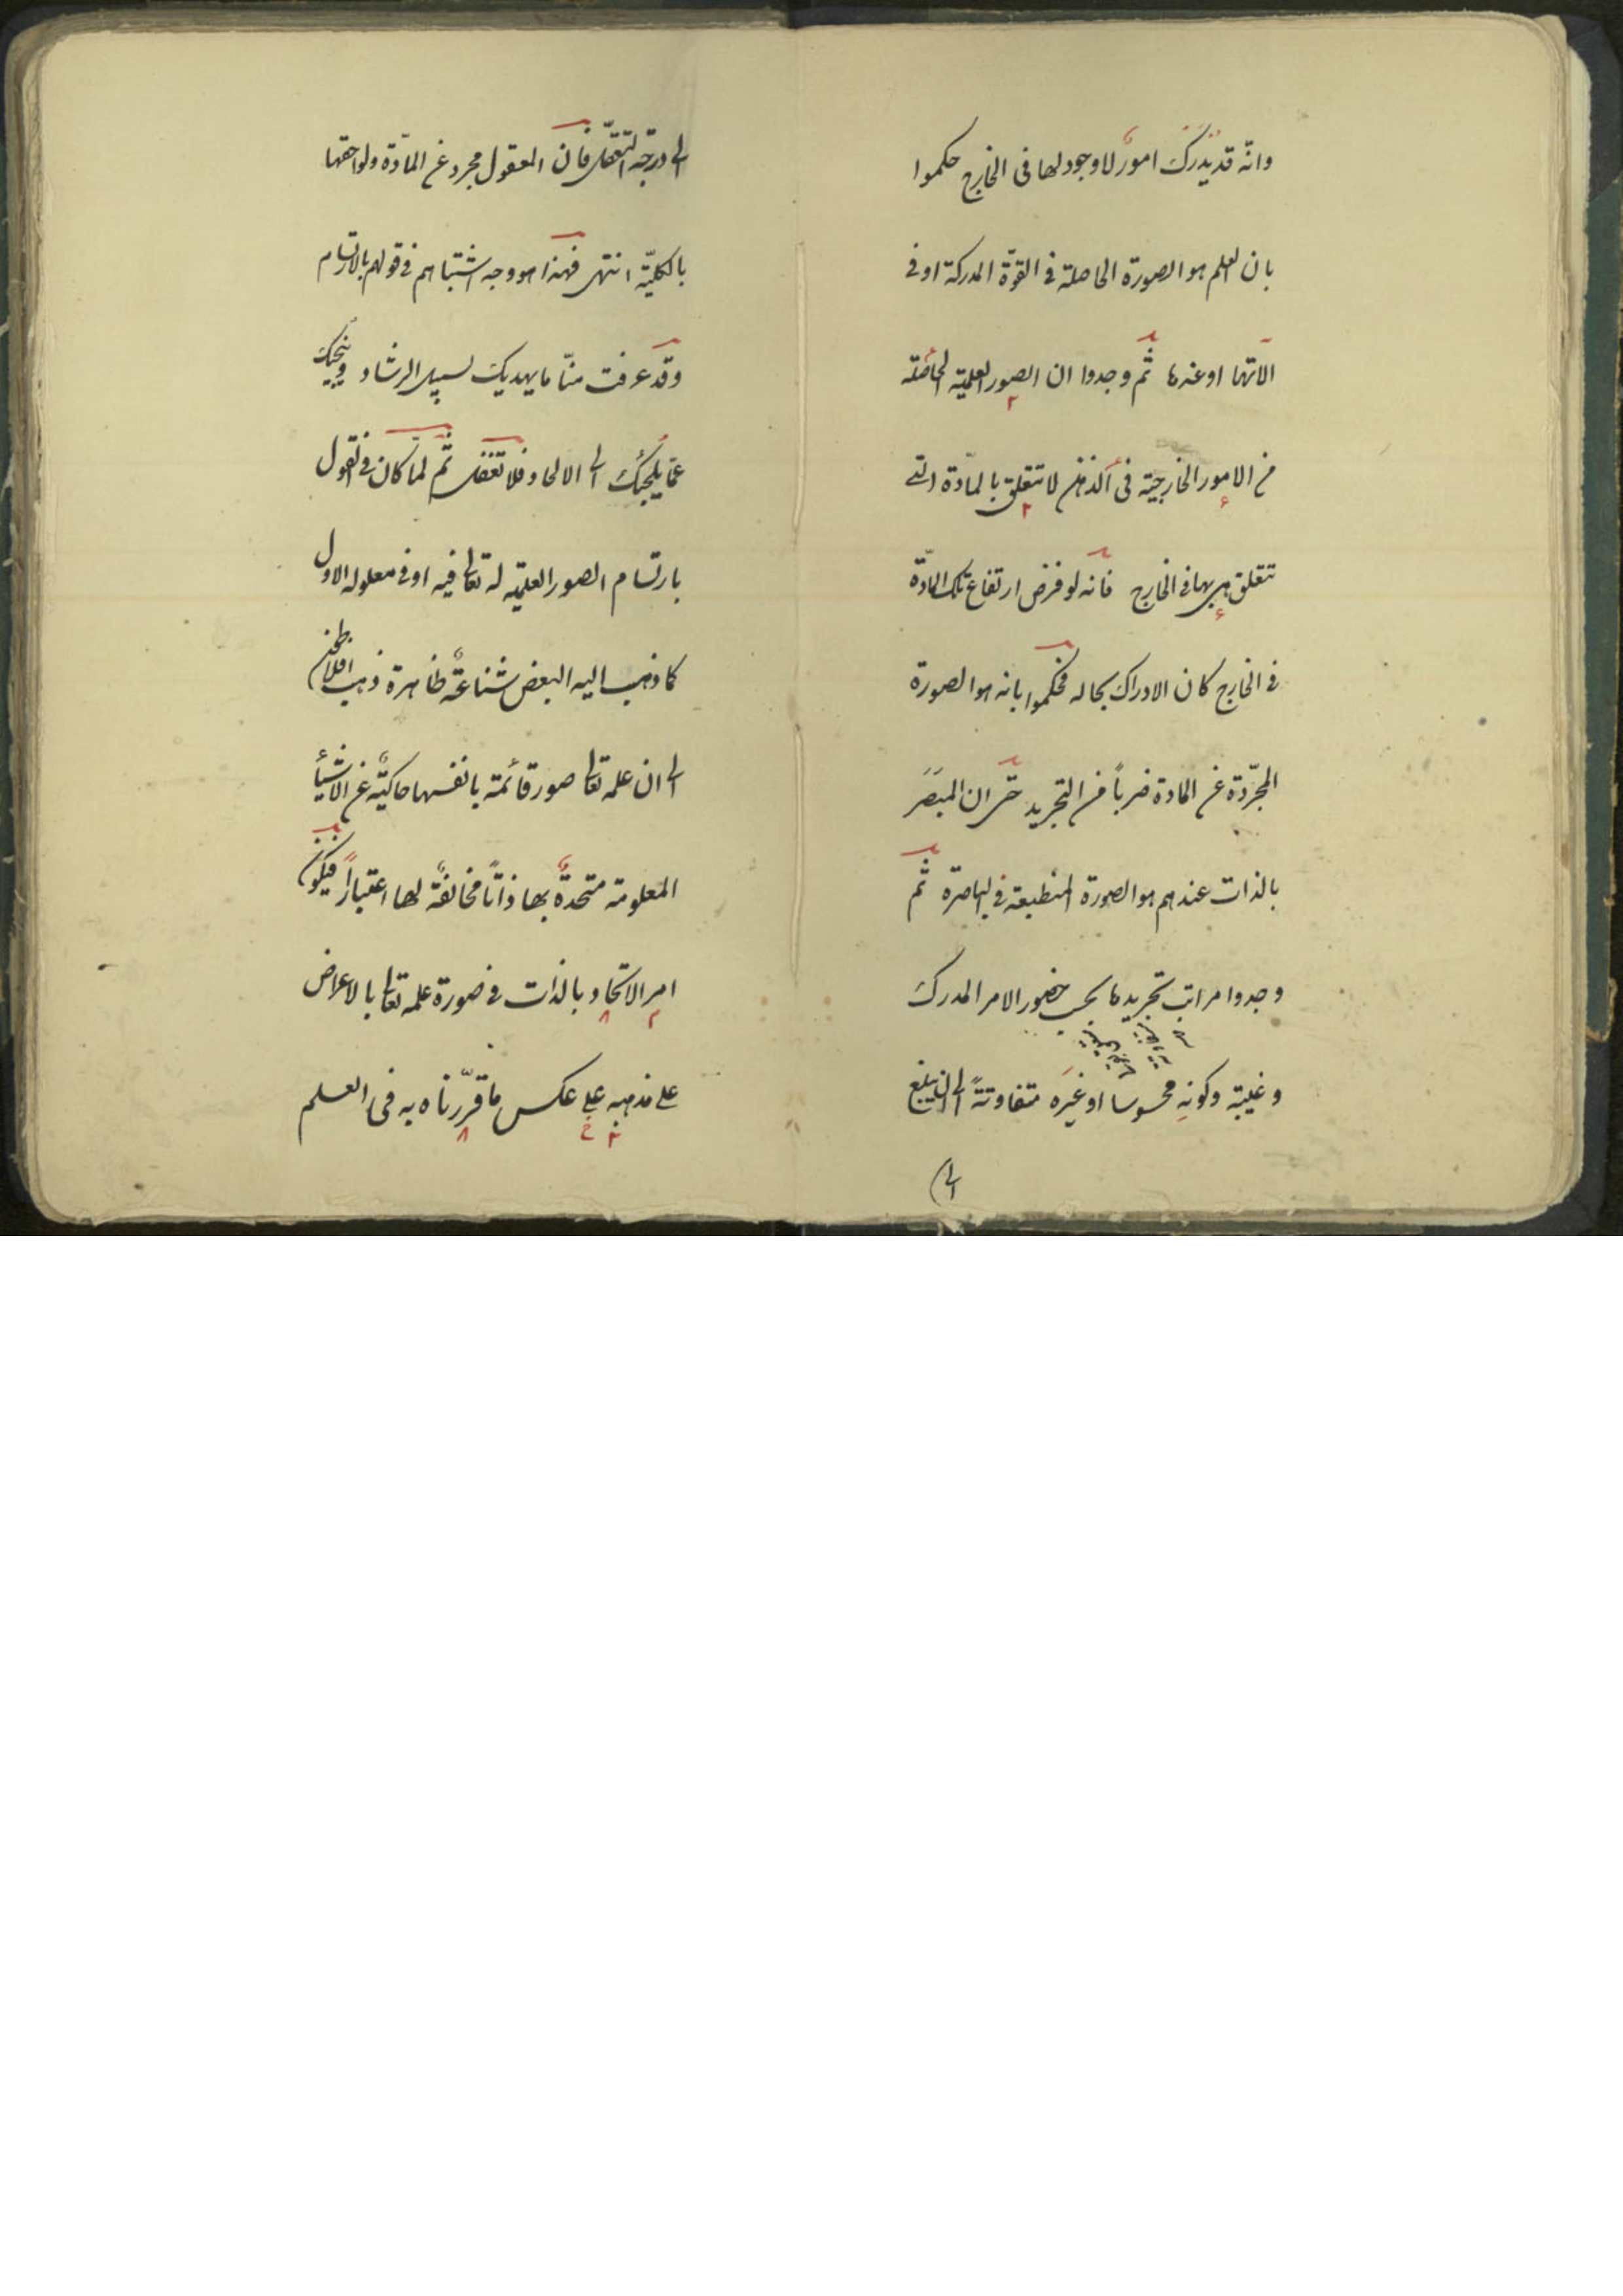 وانّه قد يُدرَك امورٌ لا وجود لها فى الخارج حكموا
بان العلم هو الصورة الحاصلة فى القوّة المدركة او فى
الاتها او عندها ثم وجدوا ان الصور العلميّة الحاصلة
من الامور الخارجيّة فى الذهن لا تتعلق بالمادّة التى
تتعلق هى بها فى الخارج فانه لو فرض ارتفاع تلك المادّة
فى الخارج كان الادراك بحاله فحكموا بانه هو الصورة
المجرّدة عن المادة ضرباً من التجريد حتى ان المبصَر
بالذات عندهم هو الصورة المنطبعة فى الباصرة ثم
وجدوا مراتب تجريدها بحسب حضور الامر المدرك
وغيبته وكونه محسوسا او غيَره متفاوتةً الى ان يبلغ
الى
الى درجة التعقّل فان المعقول مجرد عن المادّة ولواحقها
بالكليّة انتهى فهذا هو وجه اشتباهم فى قولهم بالارتسام
وقد عرفت منّا ما يهديك لسبيل الرشاد وينجيك
عمّا يلجئك الى الالحاد فلا تغفل ثم لما كان فى القول
بارتسام الصور العلميّه له تعالى فيه او فى معلوله الاول
كما ذهب اليه البعض شناعةٌ ظاهرة ذهب افلاطن
الى ان علمه تعالى صور قائمة بانفسها حاكيةٌ عن الاشيأ
المعلومة متحدةٌ بها ذاتاً مخالفةٌ لها اعتباراً فيكون
امر الاتحاد بالذات فى صورة علمه تعالى بالاعراض
على مذهبه على عكس ما قرّرناه به فى العلم